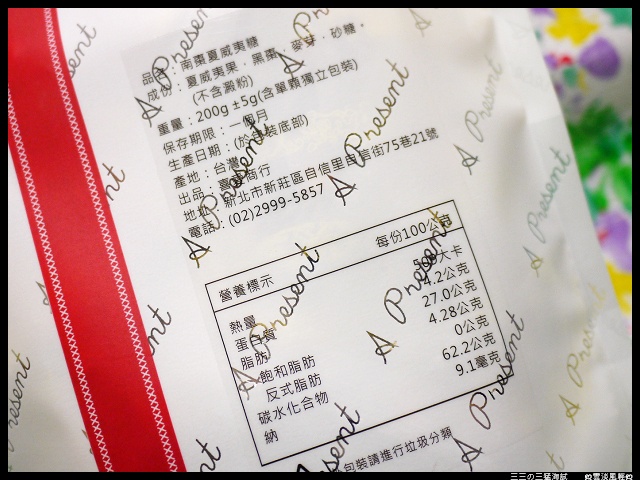 品名：南棗夏威夷糖
成份：夏威夷果．黑棗．麥芽．砂糖。
(不含澱粉)
重量：200g ±5g(含單顆獨立包裝)
保存期限：一個月
生產日期：(於包裝底部)
產地：台灣
出品：商行
地址：新北市新莊區自信里自信街75巷21號
電話：(02)2999-5857
營養標示 每份100公克
熱量 大卡
蛋白質 4.2公克
脂肪 27.0公克
飽和脂肪 4.28公克
反式脂肪 0公克
碳水化合物 62.2公克
鈉 9.1毫克
包裝請進行垃圾分類
A Present
A Present
A Present
A Present
A Present
A Present
A Present
A Present
A Present
A Present
三三の三猛海賊
雲淡風輕